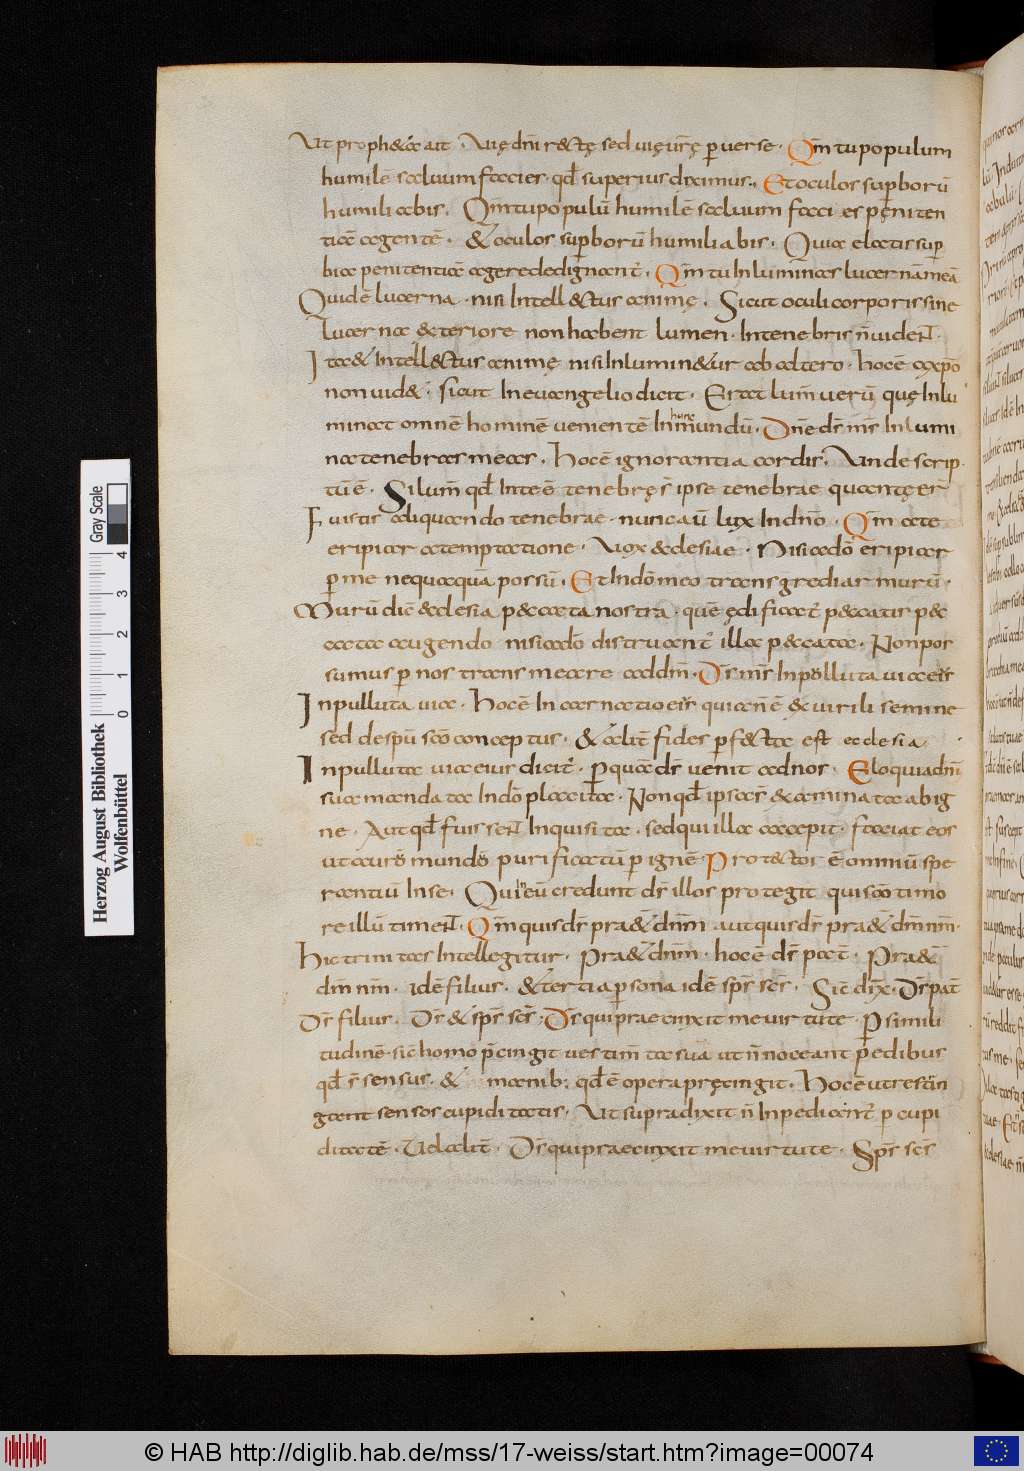 Ut proph&a ait. Vię dn̄i r&tę sed vię vr̄ę p̱verse. Qm̄ tu populum
humilē saluum facies. qđ superius diximus. Et oculos sup̱borū
humiliabis. Qm̄ tu populū humilē saluum facies pęniten
tiā agentē. & oculos sup̱borū humiliabis. Quia elatis sup̱
bia penitentiā agere dedignanť. Qm̄ tu Inluminas lucernā meā
Quid ē lucerna. nisi Intell&tus animę. Sicut oculi corporis sine
lucerna &teriore non habent lumen. In tenebris n̄ vident.
Ita & Intell&tus animę nisi Inlumin&ur ab altero. hoc ē a xpō
non vid&. sicut In euangelio dicit. Erat lum̄ verū quę Inlu
minat omnē hominē venientē In hunc mundū. Dn̄e ds̄ ms̄ Inlumi
na tenebras meas. hoc ē ignorantia cordis. Unde scrip
tū ē. Si lum̄ qđ In te ē tenebrę s̄ ipse tenebrae quantę er
Fuistis aliquando tenebrae. nunc aū lux In dn̄o. Qm̄ a te
eripiar a temptatione. Vox &clesiae. Nisi a dō eripiar
p̱ me nequaquā possū. Et In dō meo transgrediar murū.
Murū dic̄ &clesia p&cata nostra. quē ędificanť p&catis p&c
cata augendo nisi a dō distruanť illa p&cata. Non pos
sumus p̱ nos transmeare ad dm̄. Ds̄ ms̄ Inpolluta via eis̄
Inpulluta via. hoc ē Incarnatio eis̄ qui a n̄ ē ex virili semine
sed de spū scō conceptus. & alit̄ fides p̱f&ta est ecclesia
Inpulluta via eius diciť. p̱ quā ds̄ venit ad nos. Eloquia dn̄i
sua mandata In dō placita. Non qđ ipsas & aminata ab ig
ne. Aut qđ fuissent Inquisita. sed qui illa accepit. faciat eos
ut auro mundo purificatū p̱ ignē. Prot&tor ē omniū spe
rantiū In se. Qui In eū credunt ds̄ illos protegit qui scō timo
re illū timent. Qm̄ quis ds̄ pra&̄ dn̄m aut quis ds̄ pra&̄ dm̄ nm̄.
hic trinitas Intellegitur. pra&̄ dn̄m. hoc ē ds̄ pat̄. pra&̄
dm̄ nm̄. idē filius. & tertia p̱sona idē sps̄ scs̄. Sic dix̄. Ds̄ pat̄
Ds̄ filius. Ds̄ & sps̄ scs̄. Ds̄ qui praecinxit me virtute. p̱ simili
tudinē. sic homo p̄cingit vestim̄ta sua ut n̄ noceant p̄ pedibus
qđ s̄ sensus. & manib; qđ ē opera pręcingit. hoc ē ut restin
gant sensos cupiditatis. Ut supra dixit n̄ Inpedianť p̱ cupi
ditatē. Vel alit̄. Ds̄ qui praecinxit me virtute. Sps̄ scs̄
Herzog August Bibliothek
Wolfenbüttel
0 1 2 3 4
Gray Scale
© HAB http://diglib.hab.de/mss/17-weiss/start.htm?image=00074